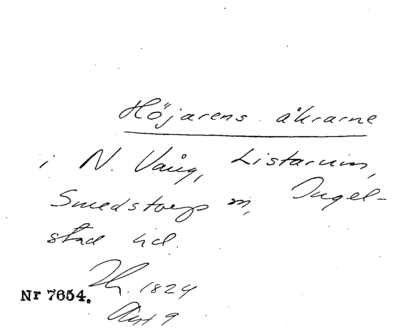 Höjarens åkrarne
i N. Vång, Listarum,
Smedstorps sn, Ingel-
stad hd.
1824
Nr 7654.
Akt 9